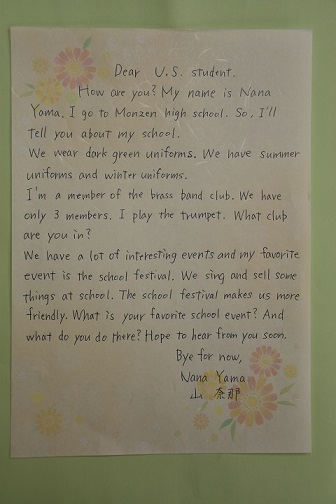 Dear U.S. student.
How are you? My name is Nana
Yama. I go to Monzen high school. So, I'll
tell you about my school.
We wear dark green uniforms. We have summer
uniforms and winter uniforms.
I'm a member of the brass band club. We have
only 3 members. I play the trumpet. What club
are you in?
We have a lot of interesting events and my favorite
event is the school festival. We sing and sell some
things at school. The school festival makes us more
friendly. What is your favorite school event? And
what do you do there? Hope to hear from you soon.
Bye for now,
Nana Yama
山 奈那